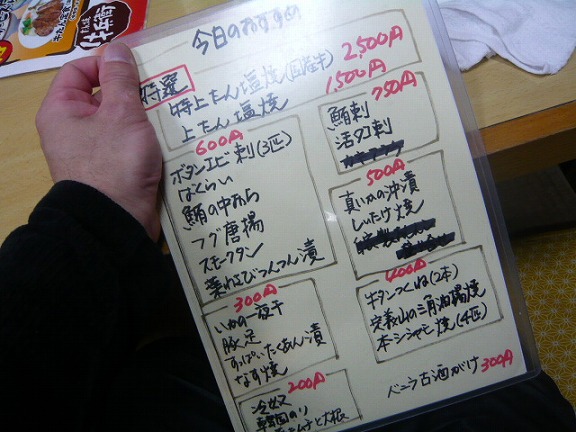 今日のおすすめ
特選
特上たん塩焼(国産牛) 2,500円
上たん塩焼 1,500円
600円
ボタンエビ刺(3匹)
ばくらい
鮪の中おち
フグ唐揚
スモークタン
葉わさびつんつん漬
300円
いかの一夜干
豚足
すっぱいたくあん漬
なす焼
200円
冷奴
韓国のり
750円
鮪刺
活タコ刺
500円
真いかの沖漬
しいたけ焼
400円
牛タンつくね(2本)
定義山の三角油揚焼
本シシャモ焼(4匹)
バニラ古酒がけ 300円